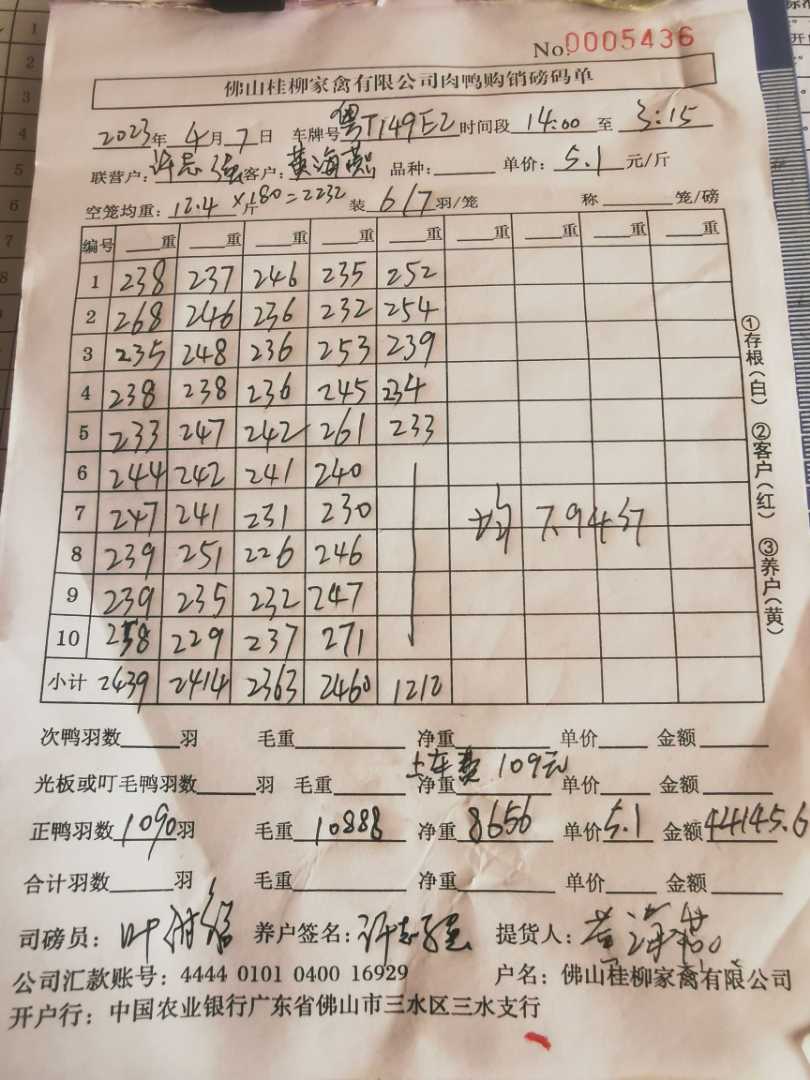 No.0005436
佛山桂柳家禽有限公司肉鸭购销磅码单
2023年 4月 7日 车牌号 粤T149E2 时间段 14:00 至 3:15
联营户: 许志强 客户: 黄海燕 品种: 单价: 5.1 元/斤
空笼均重: 12.4 斤 ×180=2232 装 6/7 羽/笼 称 笼/磅
编号 重 重 重 重 重 重 重 重 重
1 238 237 246 235 252
2 268 246 236 232 254
3 235 248 236 253 239
4 238 238 236 245 234
5 233 247 242 261 233
6 244 242 241 240
7 247 241 231 230 均 7.9437
8 239 251 226 246
9 239 235 232 247
10 258 229 237 271
小计 2439 2414 2363 2460 1212
①存根(白) ②客户(红) ③养户(黄)
次鸭羽数 羽 毛重 净重 单价 金额
上车费 109元
光板或叮毛鸭羽数 羽 毛重 净重 单价 金额
正鸭羽数 1090 羽 毛重 10888 净重 8656 单价 5.1 金额 44145.6
合计羽数 羽 毛重 净重 单价 金额
司磅员: 叶 养户签名: 许志强 提货人: 黄海燕
公司汇款账号: 4444 0101 0400 16929 户名: 佛山桂柳家禽有限公司
开户行: 中国农业银行广东省佛山市三水区三水支行